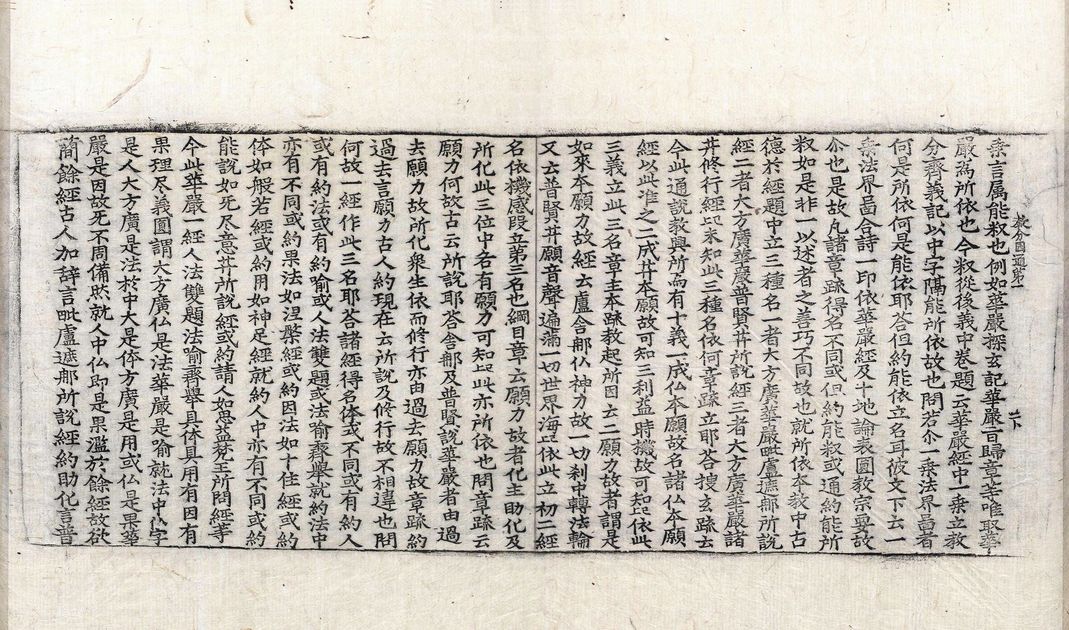 乗言属能叙也例如華嚴探玄記華嚴旨歸章䓁唯取華
嚴為所依也今叙從後義中卷題云華嚴經中一乗立教
分齊義記以中字隔能所依故也問若尒一乗法界啚者
何是所依何是能依耶荅但約能依立名耳彼文下云一
乗法界啚合詩一印依華嚴經及十地論表圓教宗要故
尒也是故凡諸章䟽得名不同或但約能叙或通約能所
叙如是非一以述者之善巧不同故也就所依本教中古
德於經題中立三種名一者大方廣華嚴毗盧遮那所說
經二者大方廣華嚴普賢菩所說經三者大方廣華嚴諸
菩修行經䛐未知此三種名依何章䟽立耶荅搜玄䟽云
今此通說教興所為有十義一成仏本願故名諸仏本願
經以此准之二成菩本願故可知三利益時機故可知䛐依此
三義立此三名章主本䟽教起所因云二願力故者謂是
如來本願力故經云盧舍那仏神力故一切刹中轉法輪
又云普賢菩願音聲遍滿一切世界海䛐依此立初二經
名依機感段立第三名也綱目章云願力故者化主助化及
所化此三位中各有願力可知䛐此亦所依也問章䟽云
願力何故古云所說耶荅舍那及普賢說華嚴者由過
去願力故所化衆生依而修行亦由過去願力故章䟽約
過去言願力古人約現在云所說及修行故不相違也問
何故一經作此三名耶荅諸經得名体或不同或有約人
或有約法或有約喻或人法雙題或法喻齊舉就約法中
亦有不同或約果法如涅槃經或約因法如十住經或約
体如般若經或約用如神足經就約人中亦有不同或約
能說如無尽意菩所說經或約請人如思益梵王所問經等
今此華嚴一經人法雙題法喻齊舉具体具用有因有
果理尽義圓謂大方廣仏是法華嚴是喻就法中仏字
是人大方廣是法於中大是体方廣是用或仏是果華
嚴是因故無不周備然就人中仏即是果濫於餘經故欲
簡餘經古人加辞言毗盧遮那所說經約助化言普
教分囙通䟽一
二下